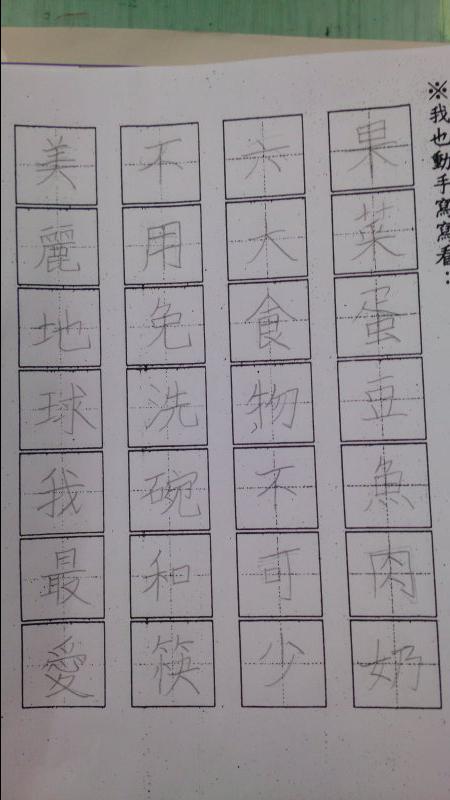 ※我也動手寫寫看：
果菜蛋豆魚肉奶
六大食物不可少
不用免洗碗和筷
美麗地球我最愛